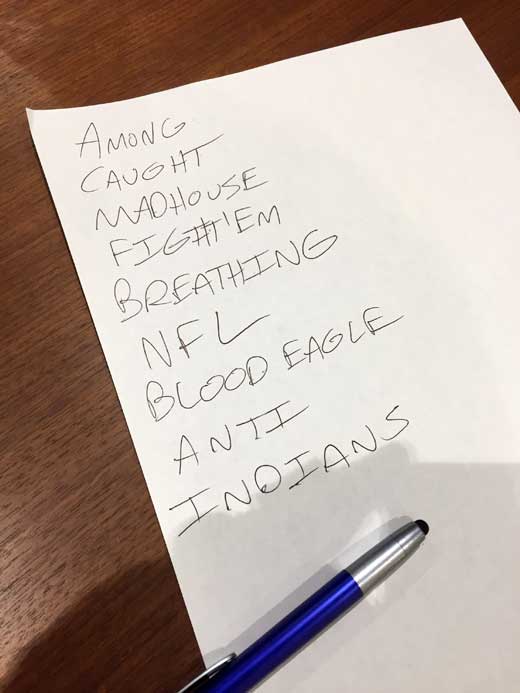 AMONG
CAUGHT
MADHOUSE
FIGHT'EM
BREATHING
NFL
BLOOD EAGLE
ANTI
INDIANS